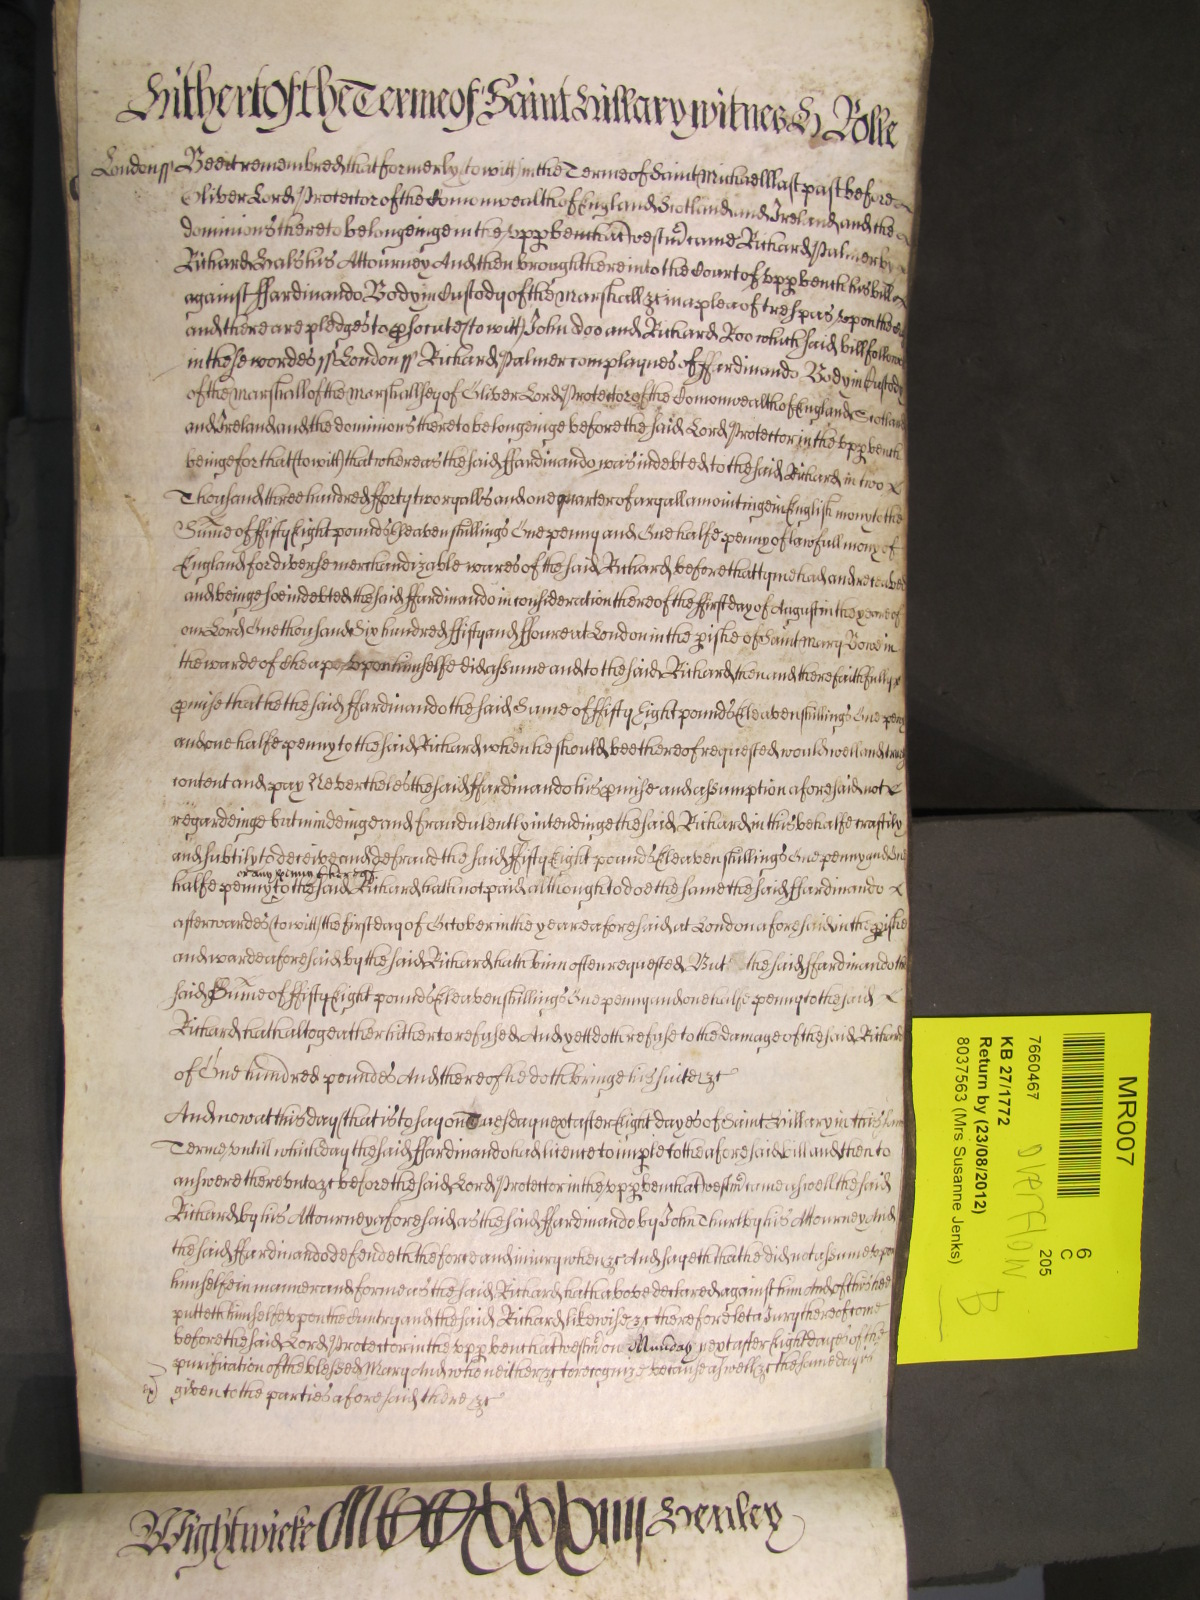 Hitherto of the Terme of Saint Hillary witnes H Rolle
London ss Bee it remembred that formerly (to witt) in the Terme of Saint Michaell last past before
Oliver Lord Protector of the Comonwealth of England Scotland and Ireland and the
dominions thereto belongeinge in the upp bench at westm̃ came Richard Palmer by
Richard Halsius Attourney And then brought here into the Court of upp bench his bill
against Ffardinando Body in Custody of the Marshall &c in a plea of trespas upon the
and there are pledges to p̱secute (to witt) John doo and Richard Roo which said bill followes
in these wordes ss London ss Richard Palmer complaynes of Ffardinando Body in Custody
of the Marshall of the Marshallsey of Oliver Lord Protector of the Comonwealth of England Scotland
and Ireland and the dominions thereto belongeinge before the said Lord Protector in the upp bench
beinge for that (to witt) that whereas the said Ffardinando was indebted to the said Richard in two
Thousand three hundred fforty two and one quarter of a amountinge in English mony to the
Sum̃e of ffifty Eight pounds Eleaven shillings One penny and One halfe penny of lawfull mony of
England for diverse merchandizable wares of the said Richard before that tyme had and receaved
and beinge soe indebted the said Ffardinando in consideration thereof the ffirst day of August in the yeare of
our Lord One thousand Six hundred ffifty and ffoure at London in the p̱ishe of Saint Mary Bowe in
the warde of Cheape upon himselfe did assume and to the said Richard then and there faithfully
p̱mise that he the said Ffardinando the said Sum̃e of ffifty Eight pounds Eleaven shillings One penny
and one halfe penny to the said Richard when he should bee thereof requested would well and truly
content and pay Neverthelesse the said Ffardinando his p̱mise and assumption aforesaid not
regardeinge but mindeinge and fraudulently intendinge the said Richard in this behalfe craftily
and subtily to deceive and defraud the said ffifty Eight pounds Eleaven shillings One penny and One
or any penny thereof
halfe penny to the said Richard hath not paid although to doe the same the said Ffardinando
afterwardes (to witt) the first day of October in the yeare aforesaid at London aforesaid in the p̱ishe
and warde aforesaid by the said Richard hath binn often requested But the said Ffardinando the
said Sum̃e of ffifty Eight pounds Eleaven shillings One penny and one halfe penny to the said
Richard hath altogeather hitherto refused And yett doth refuse to the damage of the said Richard
of One hundred poundes And thereof he doth bringe his suite &c
And now at this day (that is to say) on Tuesday next after Eight dayes of Saint Hillary in this same
Terme untill which day the said Ffardinando had licence to imp̱le to the aforesaid bill and then to
answere thereunto &c before the said Lord Protector in the upp bench at westm̃ came aswell the said
Richard by his Attourney aforesaid as the said Ffardinando by John Thurtby his Attourney And
the said Ffardinando defendeth the force and iniury when &c And sayeth that he did not assume upon
himselfe in manner and forme as the said Richard hath above declared against him And of this hee
putteth himselfe upon the Cuntry and the said Richard likewise &c therefore let a Jury thereof come
before the said Lord Protector in the upp bench at westm̃ on Munday next after Eight dayes of the
purification of the blessed Mary And who neither &c to recognize &c because aswell &c the same day is
given to the parties aforesaid there &c
Wightwicke MDCCXXXXIIII Henley
MR007
7660467
KB 27/1772
Return by (23/08/2012)
8037563 (Mrs Susanne Jenks)
6
C
205
OVERFLOW
B